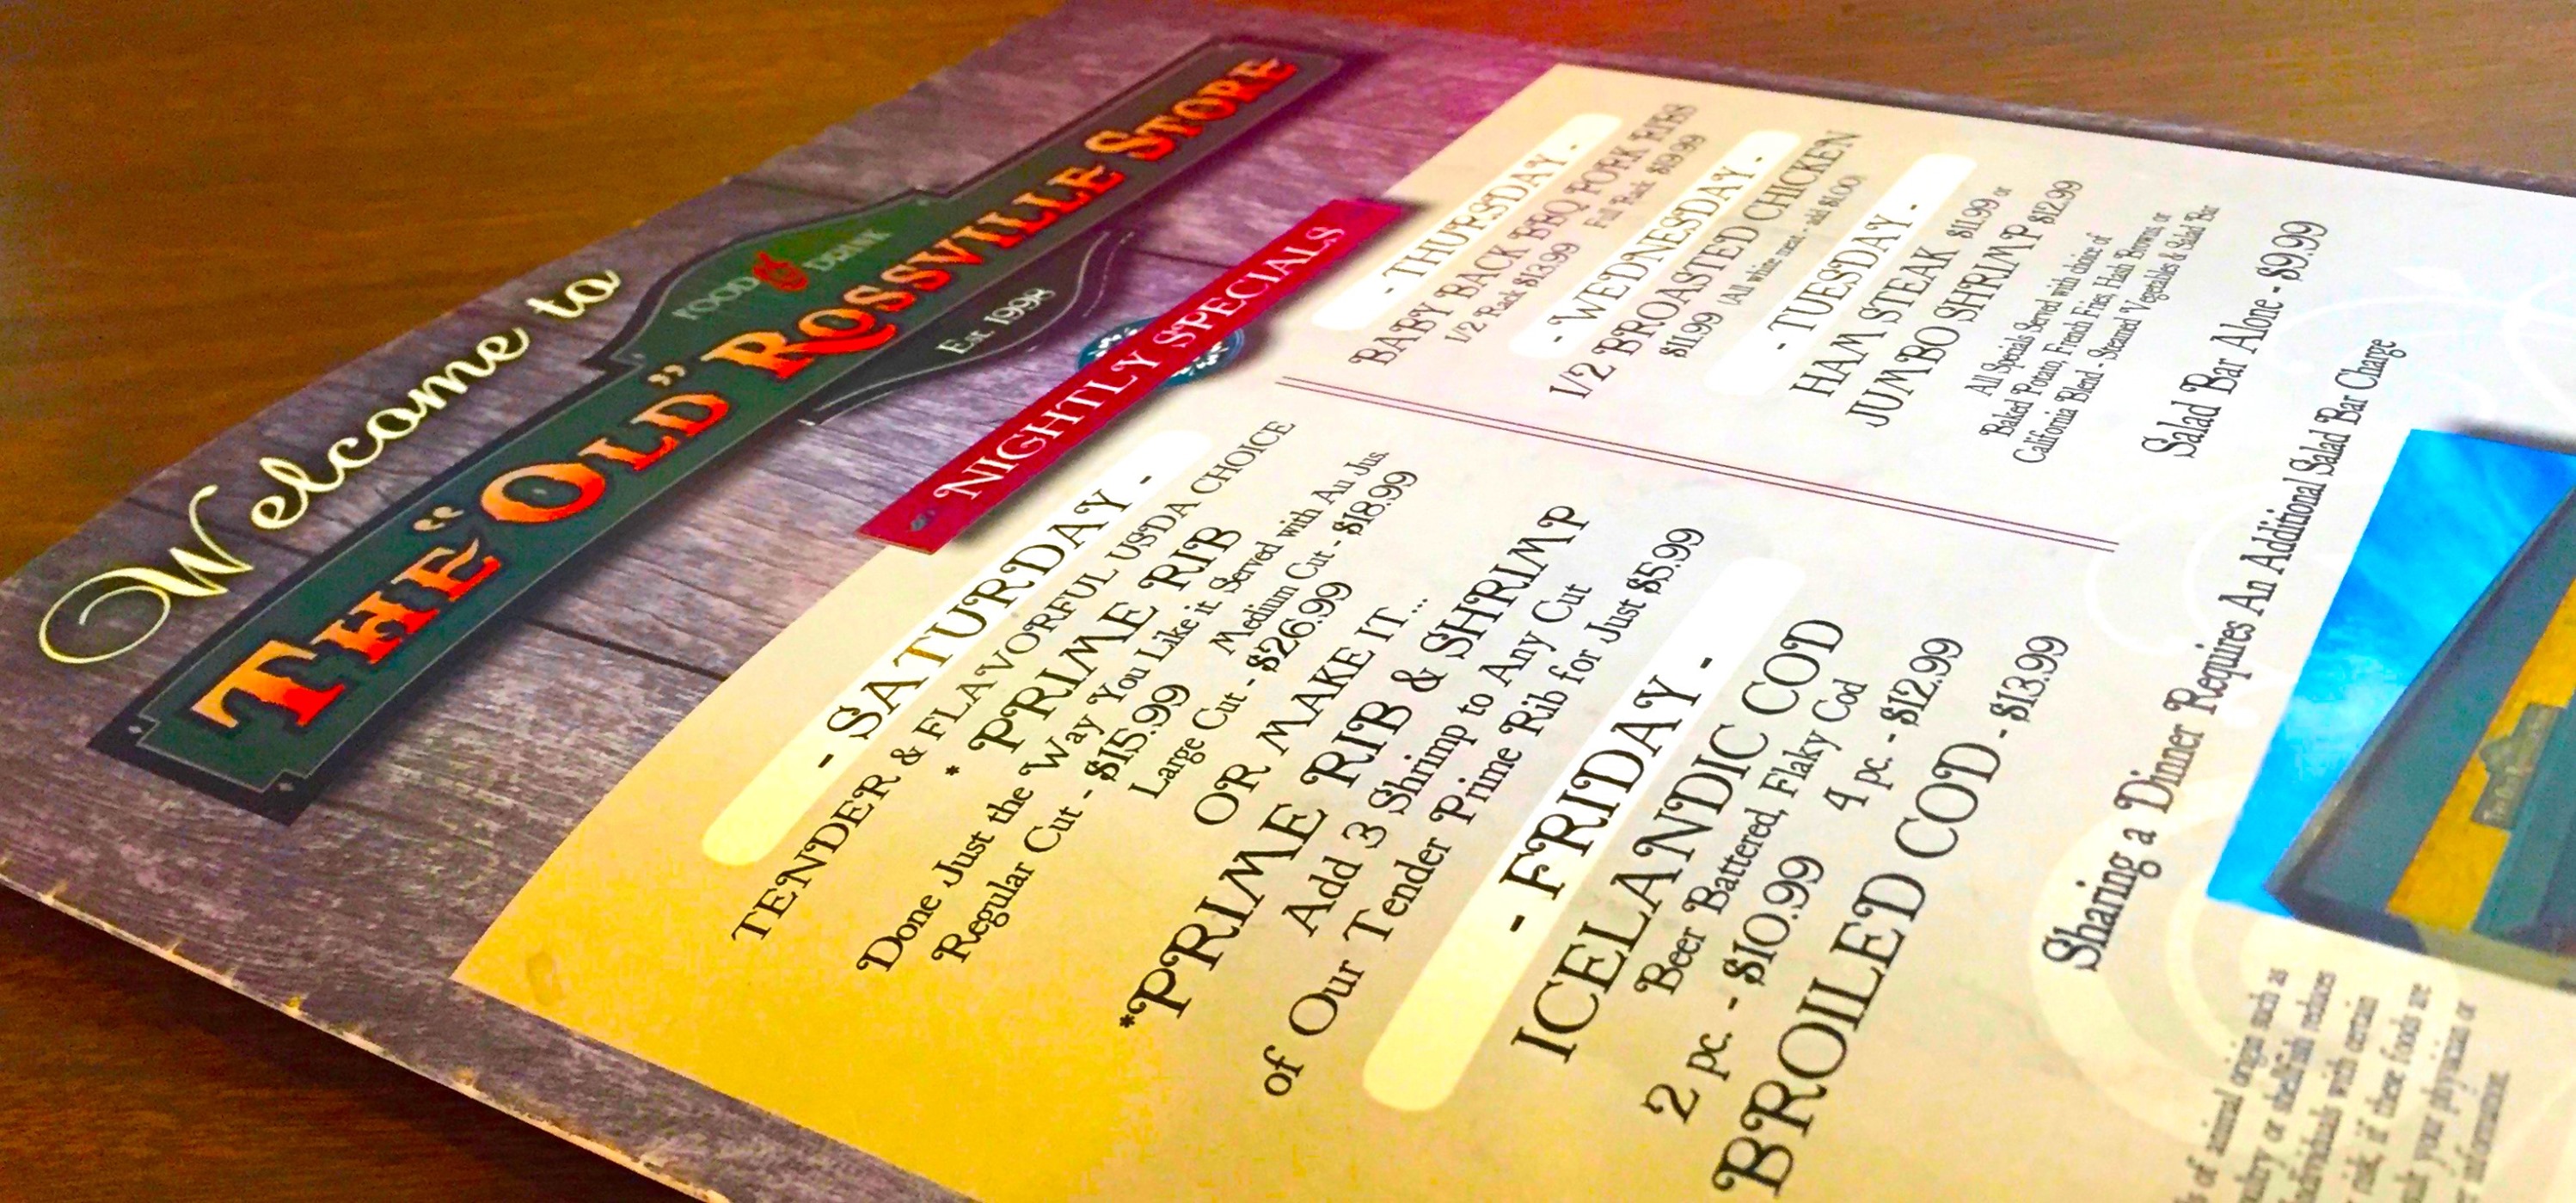 Welcome to
FOOD DRINK
THE "OLD" ROSSVILLE STORE
Est. 1998
NIGHTLY SPECIALS
- SATURDAY -
TENDER & FLAVORFUL USDA CHOICE
* PRIME RIB
Done Just the Way You Like it. Served with Au Jus.
Regular Cut - $15.99 Medium Cut - $18.99
Large Cut - $26.99
OR MAKE IT...
*PRIME RIB & SHRIMP
Add 3 Shrimp to Any Cut
of Our Tender Prime Rib for Just $5.99
- FRIDAY -
ICELANDIC COD
Beer Battered, Flaky Cod
2 pc. - $10.99 4 pc. - $12.99
BROILED COD - $13.99
- THURSDAY -
BABY BACK BBQ PORK RIBS
1/2 Rack $13.99 Full Rack $19.99
- WEDNESDAY -
1/2 BROASTED CHICKEN
$11.99 (All white meat - add $1.00)
- TUESDAY -
HAM STEAK $11.99 or
JUMBO SHRIMP $12.99
All Specials Served with choice of
Baked Potato, French Fries, Hash Browns, or
California Blend - Steamed Vegetables & Salad Bar
Salad Bar Alone - $9.99
Sharing a Dinner Requires An Additional Salad Bar Charge
of animal origin such as
or shellfish reduces
individuals with certain
risk, if these foods are
your physician or
information.